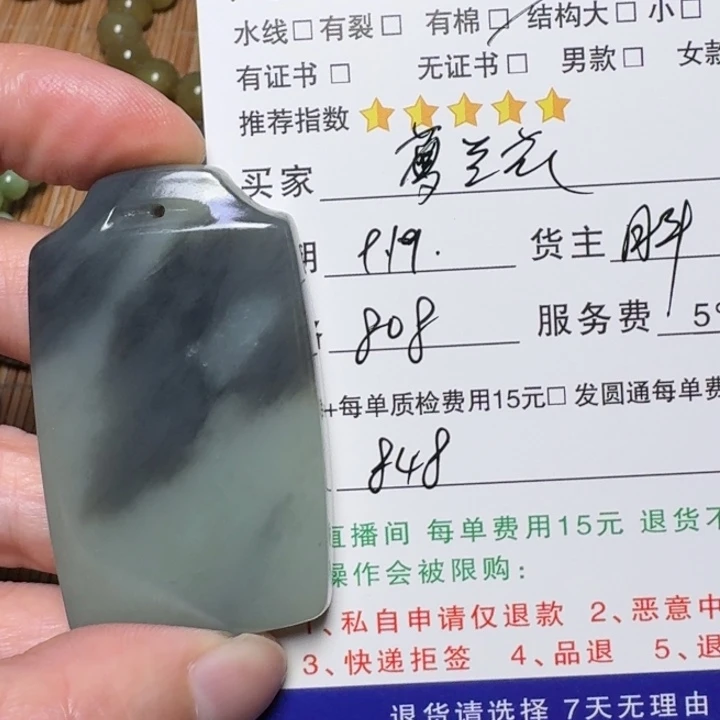 水线□有裂□ 有棉□ 结构大□ 小□
有证书□ 无证书□ 男款□ 女款
推荐指数
买家
期 9.19. 货主
808 服务费 5%
+每单质检费用15元□ 发圆通每单费
848
直播间 每单费用15元 退货不
操作会被限购：
1、私自申请仅退款 2、恶意中
3、快递拒签 4、品退 5、退
退货请选择 7天无理由